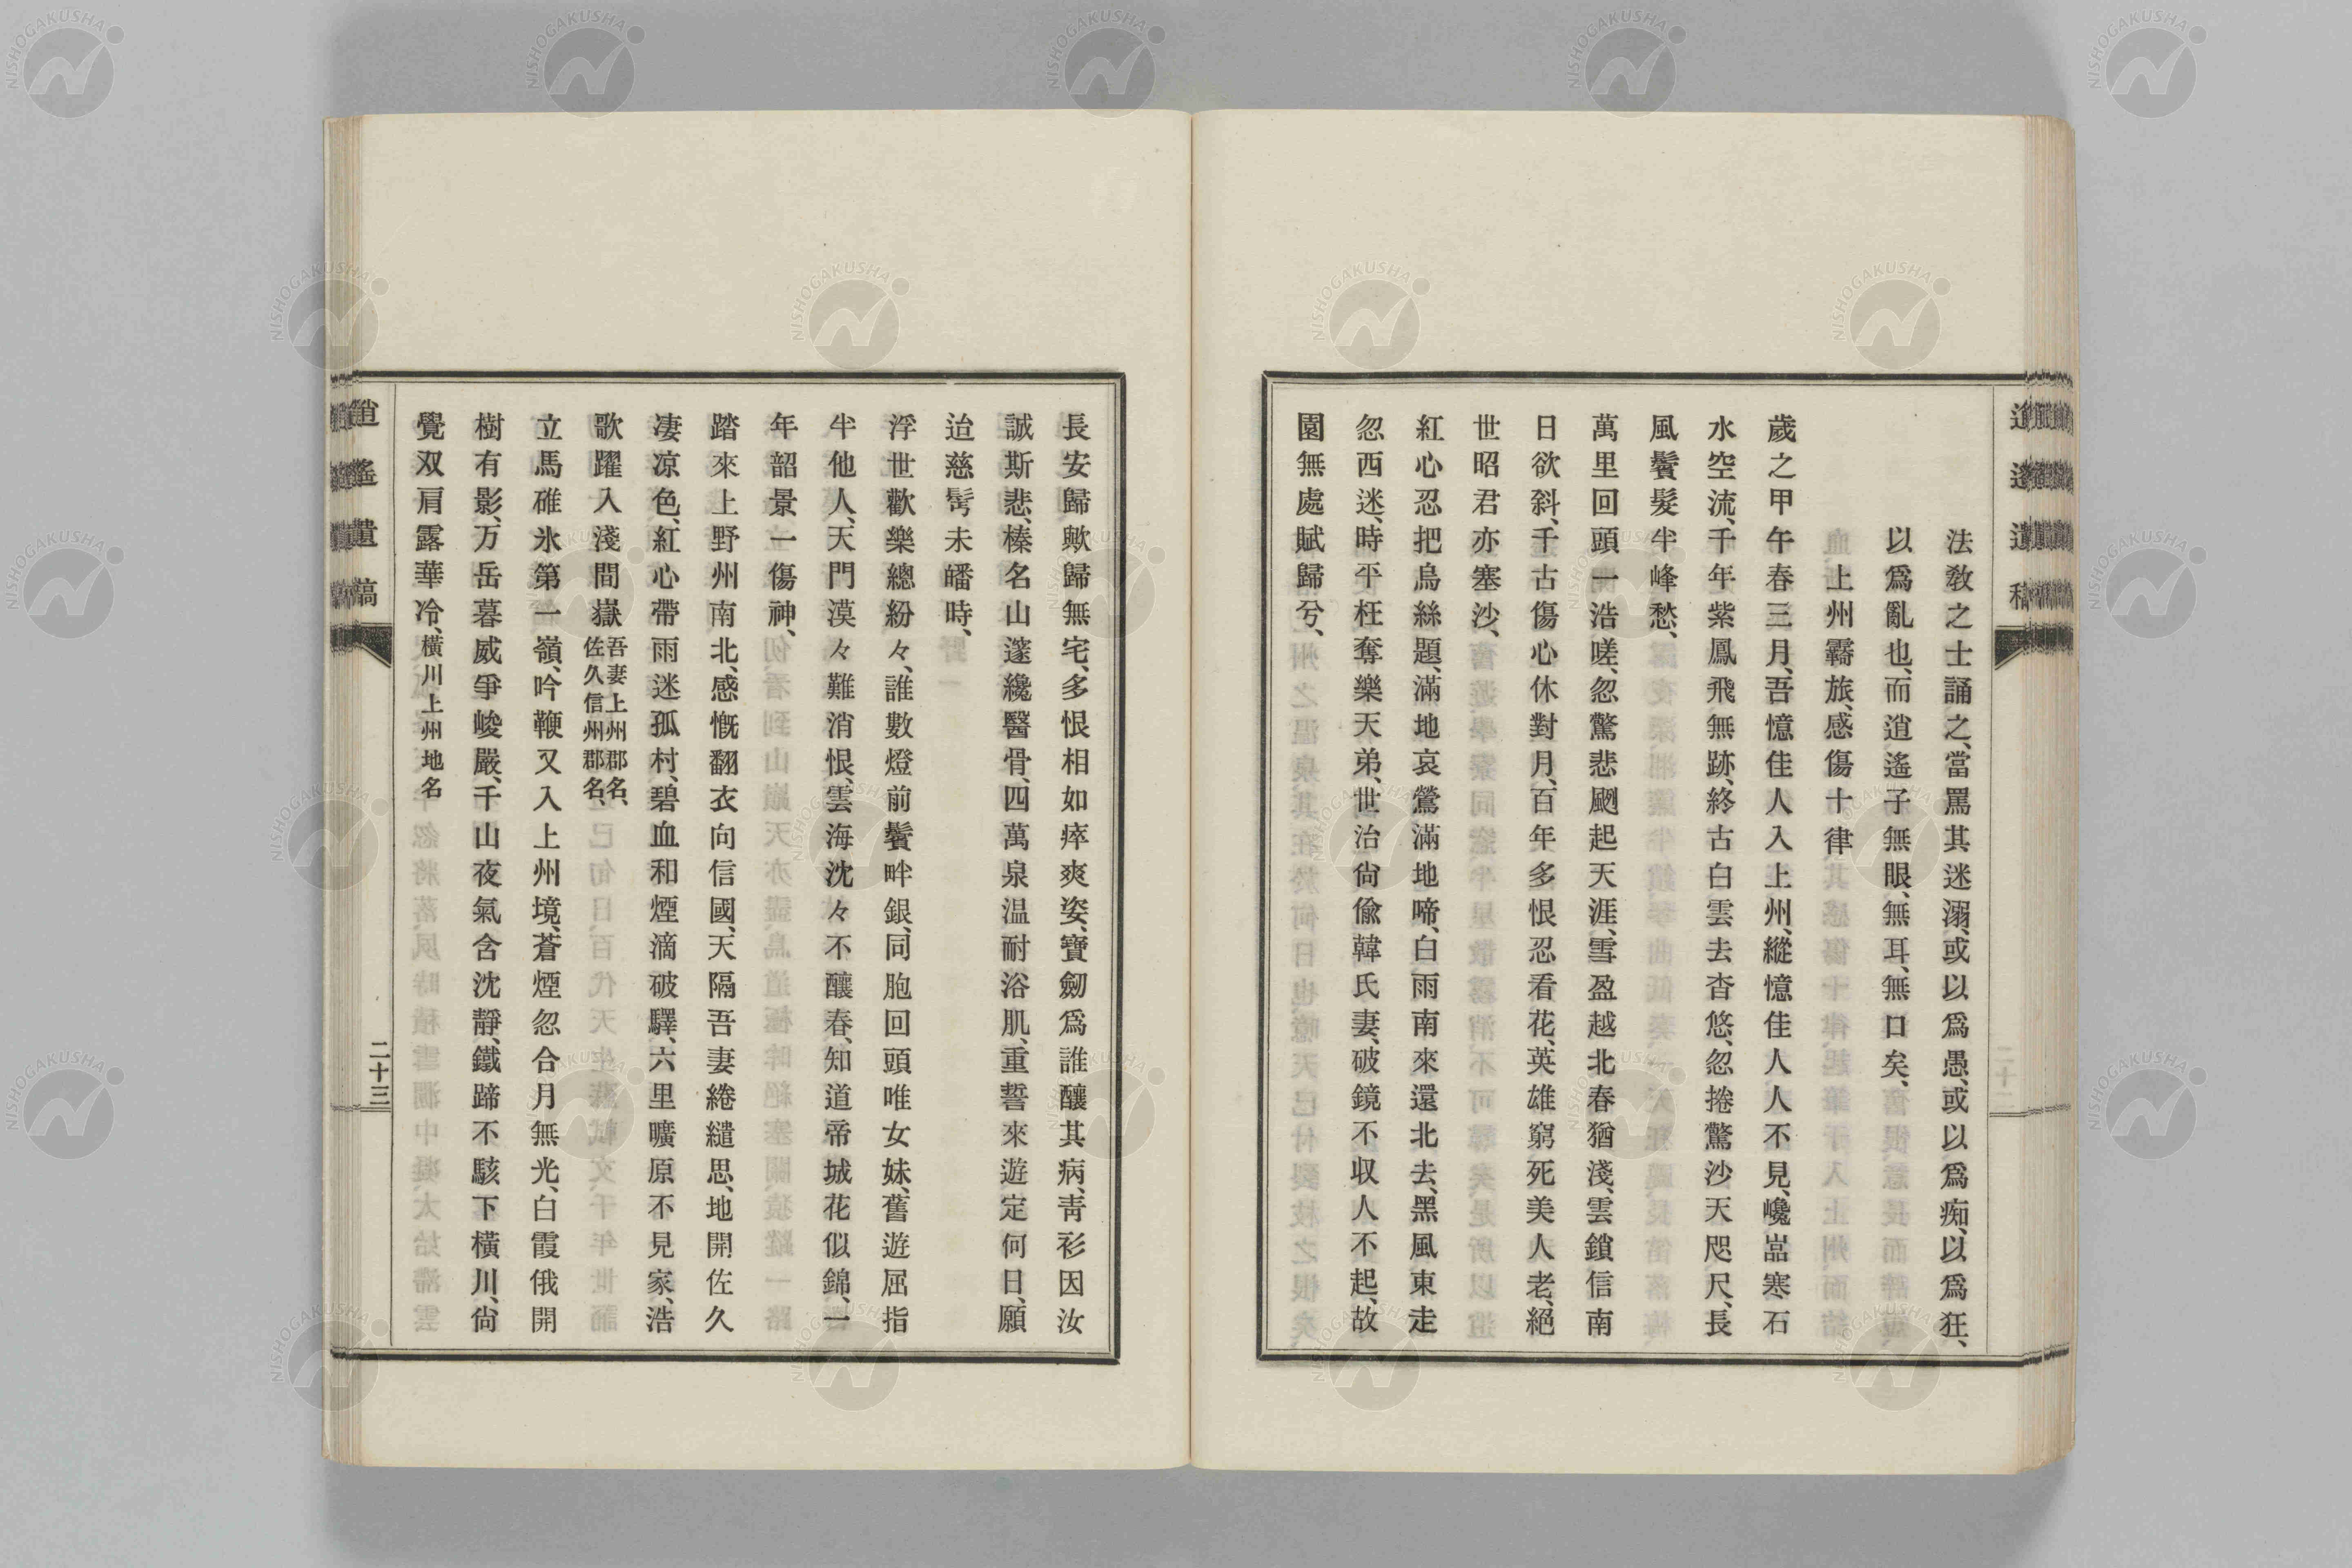 法教之士誦之、當罵其迷溺、或以爲愚、或以爲痴、以爲狂、
以爲亂也、而逍遙子無眼、無耳、無口矣、
上州霽旅、感傷十律
歲之甲午春三月、吾憶佳人入上州、縱憶佳人人不見、巉嵓寒石
水空流、千年紫鳳飛無跡、終古白雲去杳悠、忽捲驚沙天咫尺、長
風鬢髮半峰愁、
萬里回頭一浩嗟、忽驚悲颸起天涯、雪盈越北春猶淺、雲鎖信南
日欲斜、千古傷心休對月、百年多恨忍看花、英雄窮死美人老、絕
世昭君亦塞沙、
紅心忍把烏絲題、滿地哀鶯滿地啼、白雨南來還北去、黑風東走
忽西迷、時平枉奪樂天弟、世治尙偸韓氏妻、破鏡不収人不起、故
園無處賦歸兮、
長安歸歟歸無宅、多恨相如瘁爽姿、寶劒爲誰釀其病、靑衫因汝
誠斯悲、榛名山邃纔醫骨、四萬泉温耐浴肌、重誓來遊定何日、願
迨慈髩未皤時、
浮世歡樂總紛々、誰數燈前鬢畔銀、同胞回頭唯女妹、舊遊屈指
半他人、天門漠々難消恨、雲海沈々不釀春、知道帝城花似錦、一
年韶景一傷神、
踏來上野州南北、感慨翻衣向信國、天隔吾妻綣繾思、地開佐久
凄凉色、紅心帶雨迷孤村、碧血和煙滴破驛、六里曠原不見家、浩
歌躍入淺間嶽吾妻上州郡名、佐久信州郡名、
立馬碓氷第一嶺、吟鞭又入上州境、蒼煙忽合月無光、白霞俄開
樹有影、万岳暮威爭峻嚴、千山夜氣含沈靜、鐵蹄不駭下橫川、尙
覺双肩露華冷、橫川上州地名
逍遙遺稿
二十三
NISHOGAKUSHA